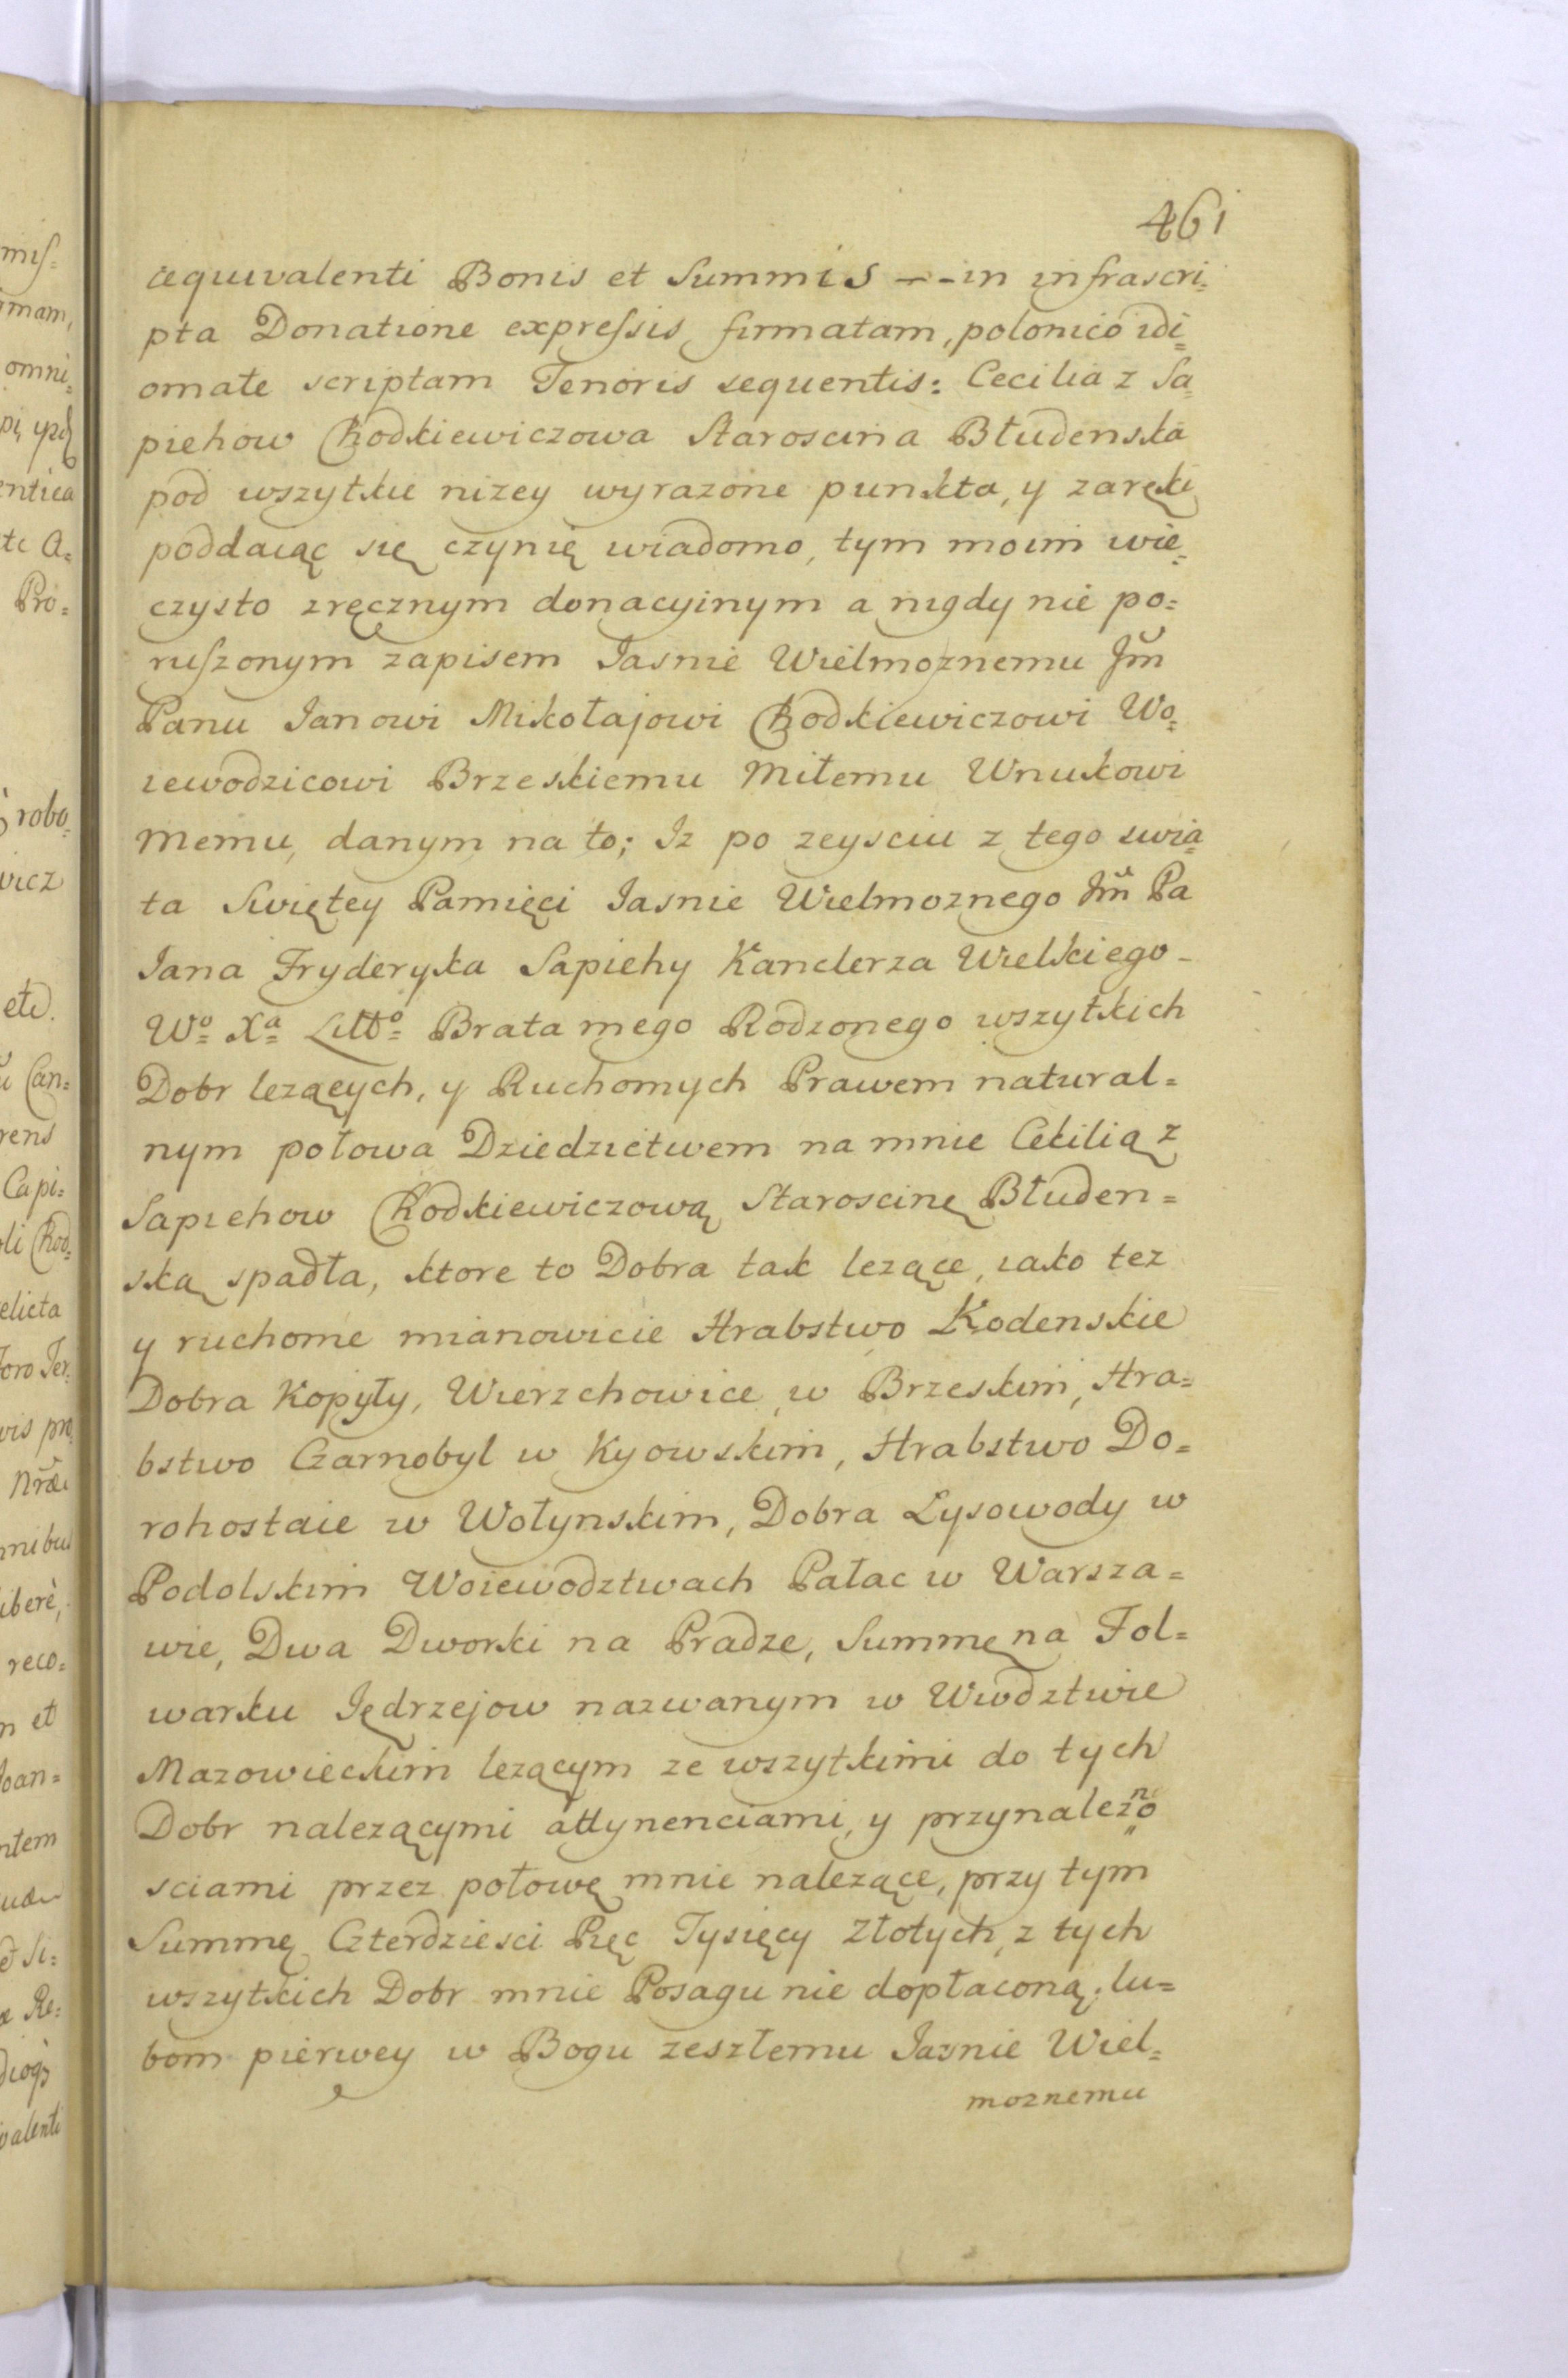 461
æquivalenti Bonis et Summis -- in infrascri=
pta Donatione expreſsis firmatam, polonico idi=
omate scriptam Tenoris sequentis: Cecilia z Sa=
piehow Chodkiewiczowa Staroscina Błudenska
pod wszytkie nizey wyrazone punkta, y zaręki
poddaiąc się czynię wiadomo, tym moim wie=
czysto zręcznym donacyinym a nigdy nie po=
ruſzonym zapisem Iasnie Wielmoznemu Jm̃
Panu Ianowi Mikołajowi Chodkiewiczowi Wo=
iewodzicowi Brzeskiemu Miłemu Wnukowi
memu, danym na to; Iz po zeysciu z tego swia=
ta Swiętey Pamięci Iasnie Wielmoznego Jm̃ Pa
Iana Fryderyka Sapiehy Kanclerza Wielkiego -
Wo= Xa= Litto= Brata mego Rodzonego wszytkich
Dobr lezących, y Ruchomych Prawem natural=
nym połowa Dziedzictwem na mnie Cecilią z
Sapiehow Chodkiewiczową Staroscinę Błuden=
ską spadła, ktore to Dobra tak lezące, iako tez
y ruchome mianowicie Hrabstwo Kodenskie
Dobra Kopyły, Wierzchowice, w Brzeskim, Hra=
bstwo Czarnobyl w Kyowskim, Hrabstwo Do=
rohostaie w Wołynskim, Dobra Lysowody w
Podolskim Woiewodztwach Pałac w Warsza=
wie, Dwa Dworki na Pradze, Summę na Fol=
warku Iędrzejow nazwanym w Wwdztwie
Mazowieckim lezącym ze wszytkimi do tych
Dobr nalezącymi attynenciami, y przynalezno=
sciami przez połowę mnie nalezące, przy tym
Summę Czterdziesci Pięc Tysięcy Złotych, z tych
wszytkich Dobr mnie Posagu nie dopłaconą; lu=
bom pierwey w Bogu zeszłemu Iasnie Wiel=
moznemu